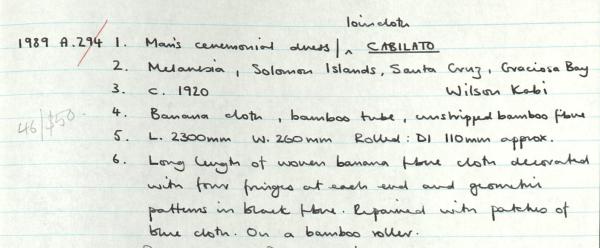 loincloth
1989 A.294 1. Man's ceremonial dress / ^ CABILATO
2. Melanesia, Solomon Islands, Santa Cruz, Graciosa Bay
3. c. 1920 Wilson Kabi
4. Banana cloth, bamboo tube, unstripped bamboo fibre
46/$50. 5. L. 2300mm W. 260mm Rolled: DI 110mm approx.
6. Long length of woven banana fibre cloth decorated
with four fringes at each end and geometric
patterns in black fibre. Repaired with patches of
blue cloth. On a bamboo roller.